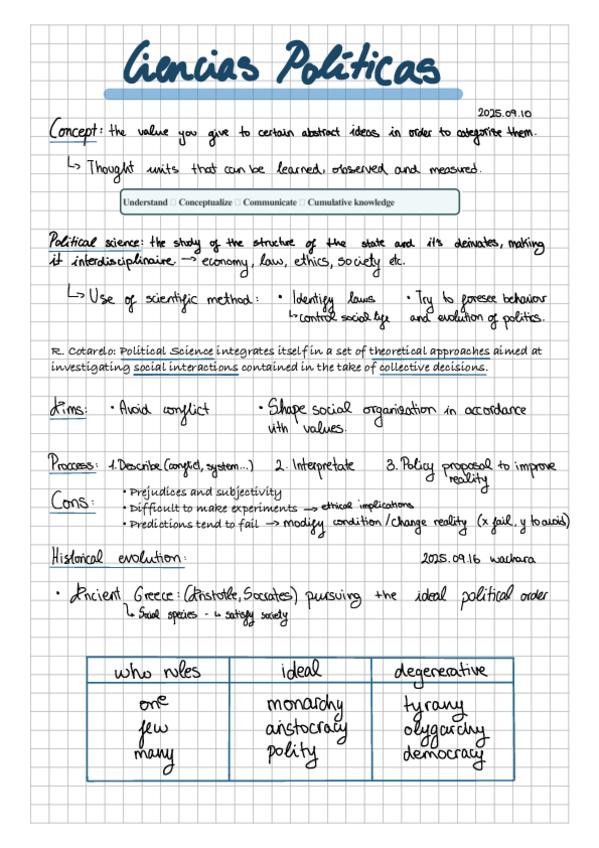 Ciencias Políticas
2025.09.10
Concept: the value you give to certain abstract ideas in order to categorize them.
↳ Thought units that can be learned, observed and measured.
Understand □ Conceptualize □ Communicate □ Cumulative knowledge
Political science: the study of the structure of the state and it's derivates, making
it interdisciplinaire. → economy, law, ethics, society etc.
↳ Use of scientific method: • Identify laws • Try to foresee behaviour
↳ control social life and evolution of politics.
R. Cotarelo: Political Science integrates itself in a set of theoretical approaches aimed at
investigating social interactions contained in the take of collective decisions.
Aims: • Avoid conflict • Shape social organisation in accordance
with values.
Process: 1. Describe (conflict, system...) 2. Interpretate 3. Policy proposal to improve
reality
Cons: • Prejudices and subjectivity
• Difficult to make experiments → ethical implications
• Predictions tend to fail → modify condition/change reality (x fail, y to avoid)
Historical evolution: 2025.09.16
• Ancient Greece: (Aristotle, Socrates) pursuing the ideal political order
↳ Social species - satisfy society
who rules ideal degenerative
one monarchy tyrany
few aristocracy olygarchy
many polity democracy